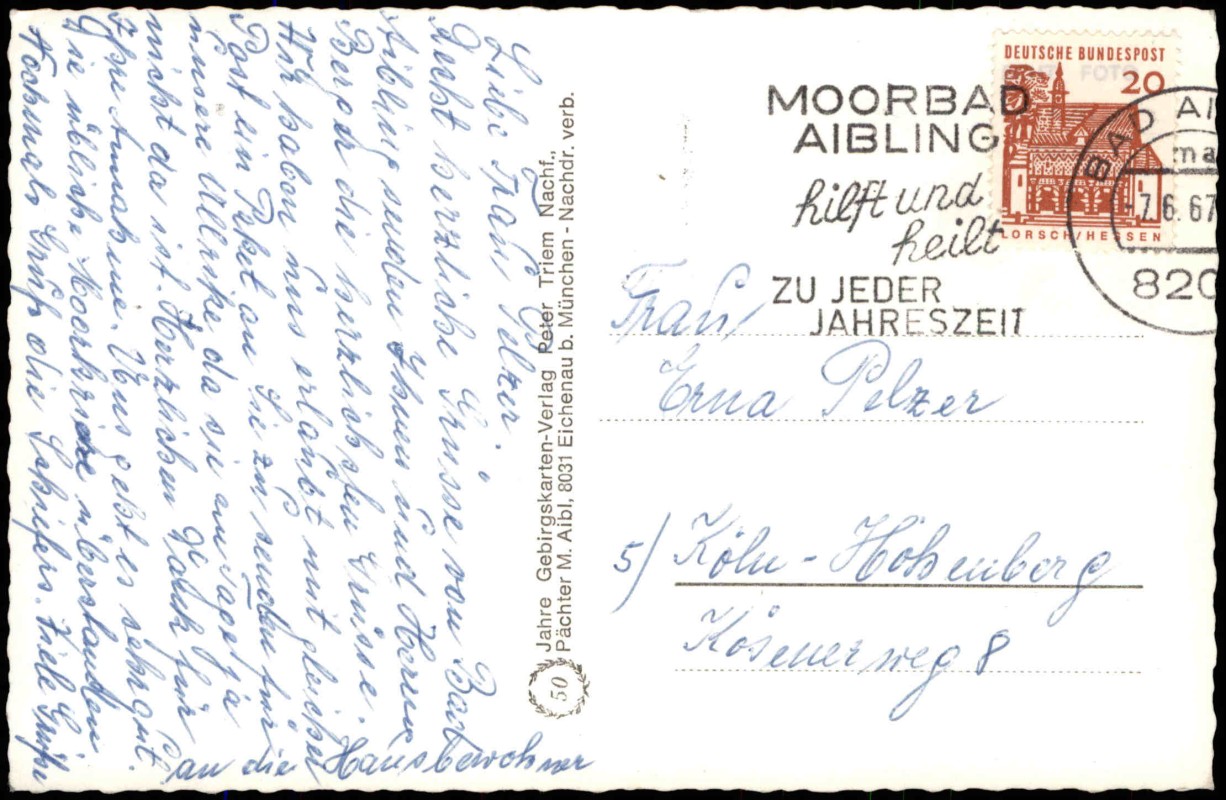 Liebe Frau Pelzer!
Recht herzliche Grüsse von Bad
Aibling senden Ihnen und Herrn
Berger die herzlichsten Grüsse.
Ich habe uns erlaubt mit gleicher
Post ein Paket an Sie zu senden für
unsere Ulrike da sie am Tage ja
nicht da ist. Herzlichen Dank für
Ihre Annahme. Uns geht es sehr gut.
Die übliche Moorkrise überstanden
Nochmals Grüße die Schiefers. Viele Grüße
an die Hausbewohner
50 Jahre Gebirgskarten-Verlag Peter Triem Nachf.,
Pächter M. Aibl, 8031 Eichenau b. München - Nachdr. verb.
DEUTSCHE BUNDESPOST
20
LORSCH/HESSEN
MOORBAD
AIBLING
hilft und
heilt
ZU JEDER
JAHRESZEIT
BAD AI
ma
-7.6.67
820
Frau
Erna Pelzer
5/ Köln-Höhenberg
Kösenerweg 8